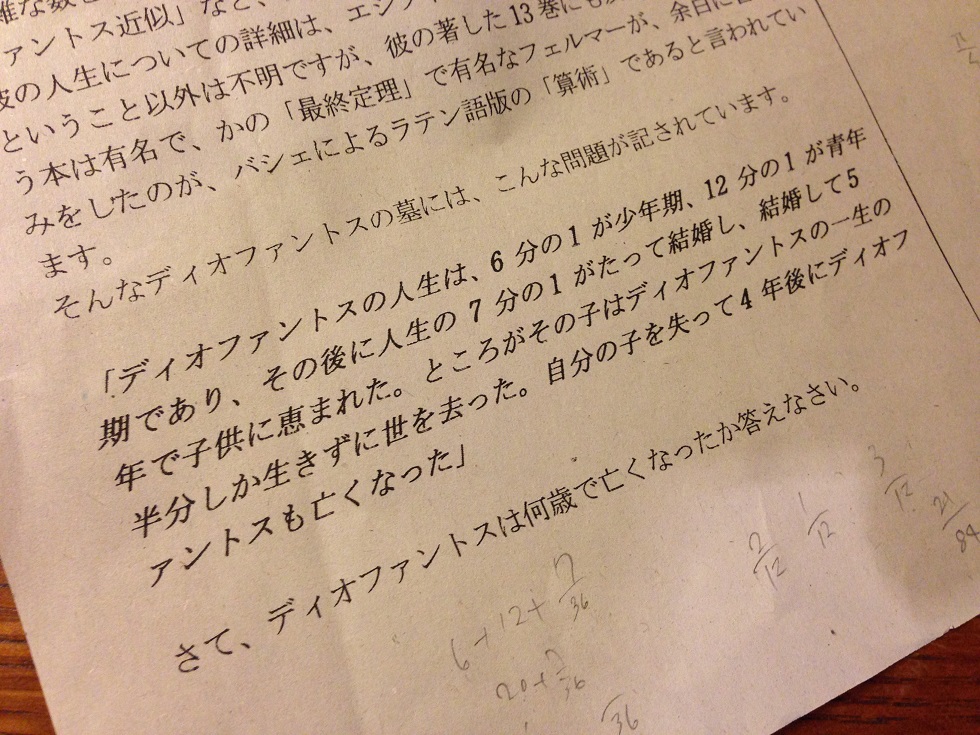 ァントス近似」など、
彼の人生についての詳細は、エジプ
ということ以外は不明ですが、彼の著した13巻にも
う本は有名で、かの「最終定理」で有名なフェルマーが、余白に
みをしたのが、バシェによるラテン語版の「算術」であると言われてい
ます。
そんなディオファントスの墓には、こんな問題が記されています。
「ディオファントスの人生は、6分の1が少年期、12分の1が青年
期であり、その後に人生の7分の1がたって結婚し、結婚して5
年で子供に恵まれた。ところがその子はディオファントスの一生の
半分しか生きずに世を去った。自分の子を失って4年後にディオフ
ァントスも亡くなった」
さて、ディオファントスは何歳で亡くなったか答えなさい。
2/12 1/12 3/12 21/84
6+12+7/36
20+7/36
/36